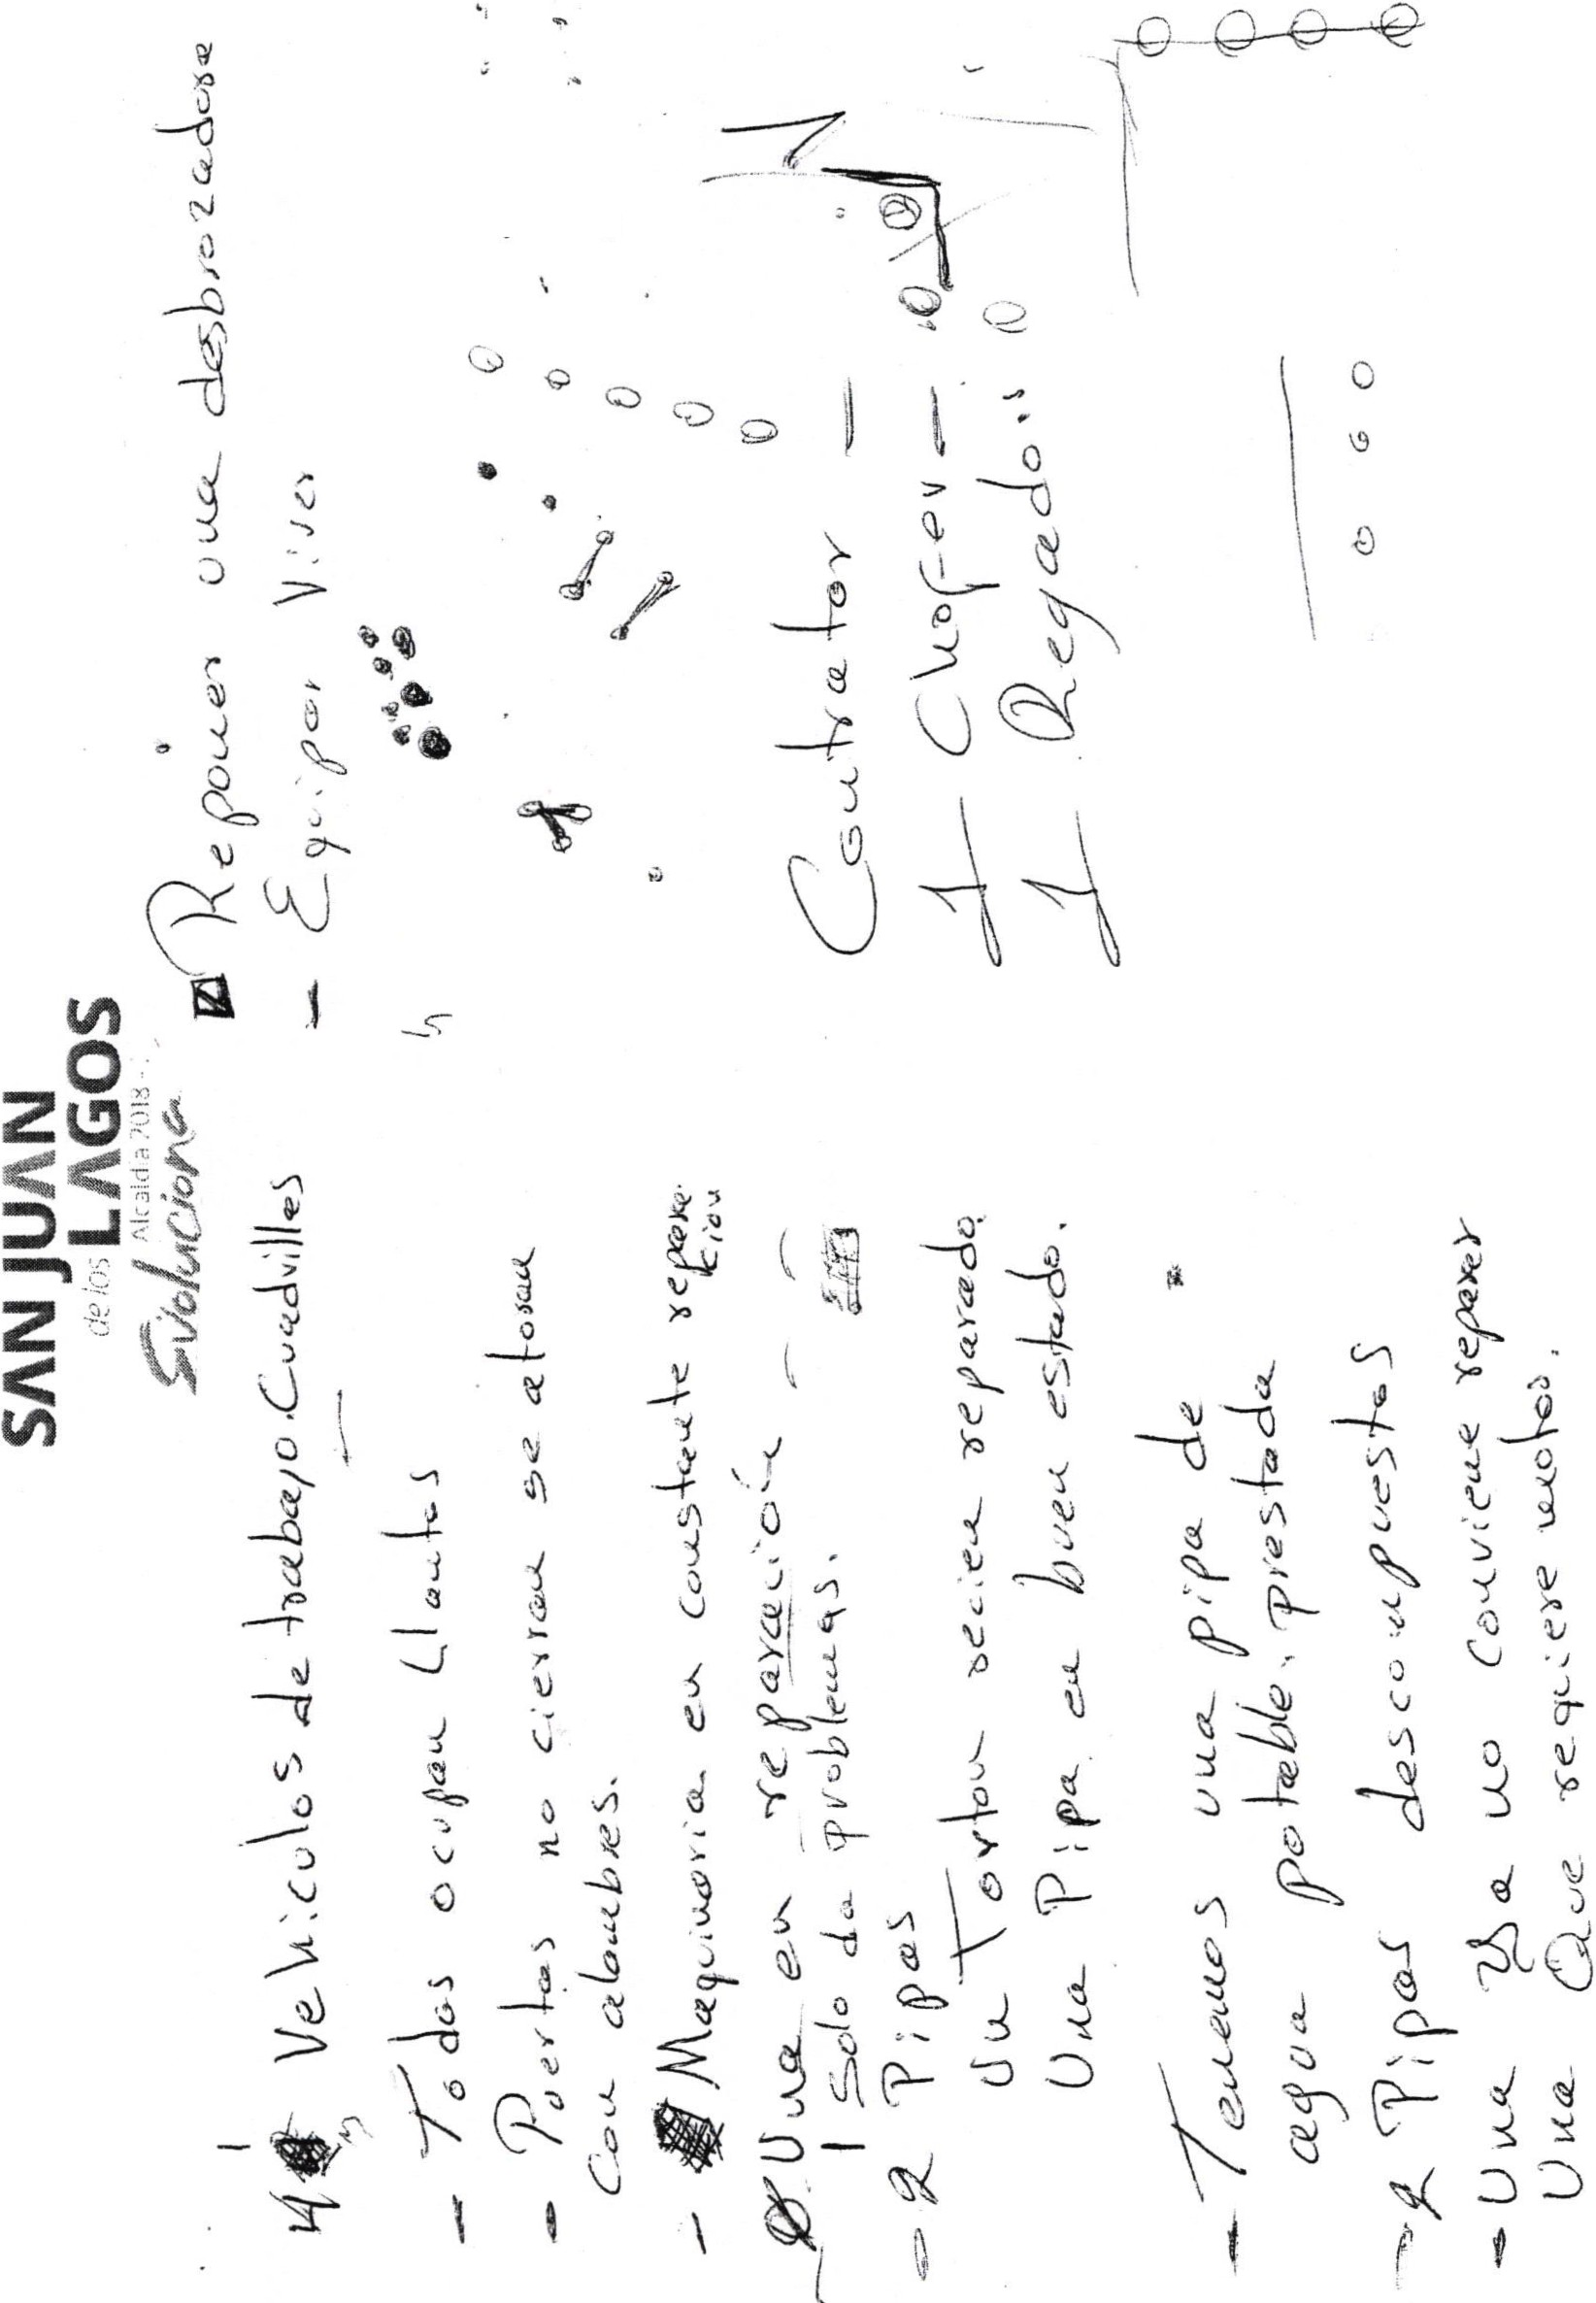 SAN JUAN
de los LAGOS
Alcaldía 2018 -
Evoluciona
4 Vehiculos de trabajo. Cuadrillas
- Todas ocupan Llantas
- Puertas no cierran se atoran
con alambres.
- Maquinaria en constante repara-
cion
Una en reparación
1 Solo da problemas.
- 2 Pipas
Un Torton recien reparado.
Una Pipa en buen estado.
- Tenemos una pipa de
agua potable. prestada
- 2 Pipas descompuestas
- Una Ya no conviene reparar
Una Que requiere motor.
Reponer una desbrozadora
- Equipar
Contratar -
1 Chofer -
1 Regador